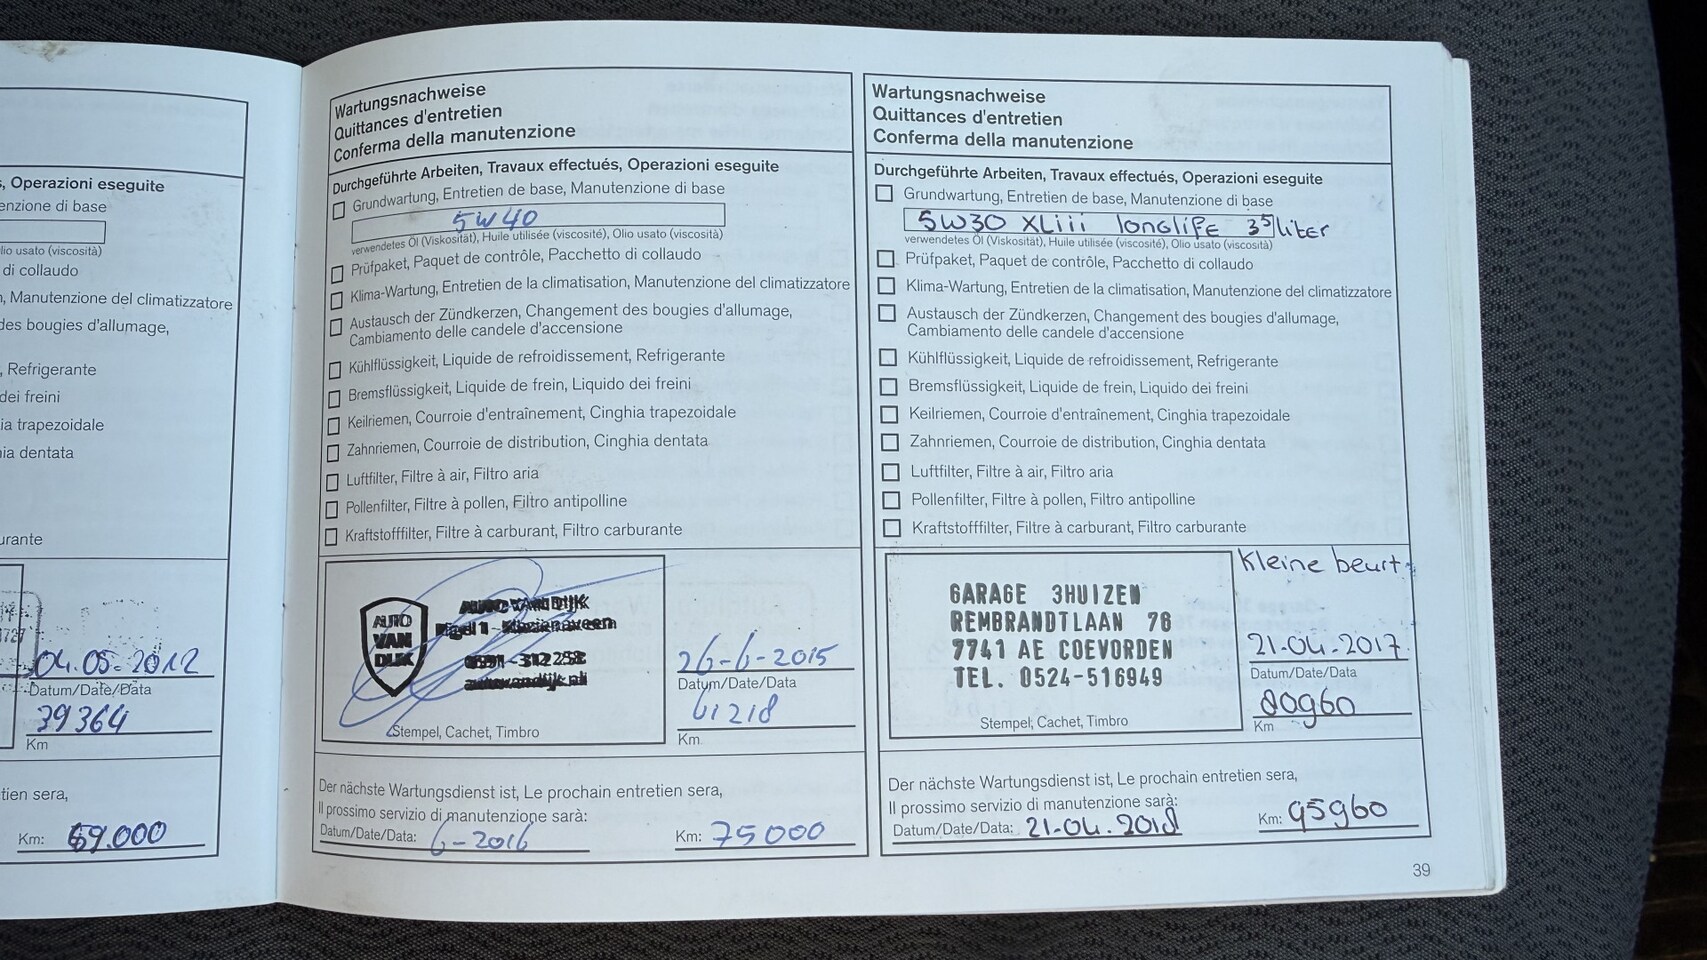 , Operazioni eseguite
enzione di base
olio usato (viscosità)
di collaudo
, Manutenzione del climatizzatore
des bougies d'allumage,
, Refrigerante
dei freini
ia trapezoidale
ia dentata
urante
04.05-2012
Datum/Date/Data
39364
Km
tien sera,
Km: 69.000
Wartungsnachweise
Quittances d'entretien
Conferma della manutenzione
Durchgeführte Arbeiten, Travaux effectués, Operazioni eseguite
Grundwartung, Entretien de base, Manutenzione di base
5W40
verwendetes Öl (Viskosität), Huile utilisée (viscosité), Olio usato (viscosità)
Prüfpaket, Paquet de contrôle, Pacchetto di collaudo
Klima-Wartung, Entretien de la climatisation, Manutenzione del climatizzatore
Austausch der Zündkerzen, Changement des bougies d'allumage,
Cambiamento delle candele d'accensione
Kühlflüssigkeit, Liquide de refroidissement, Refrigerante
Bremsflüssigkeit, Liquide de frein, Liquido dei freini
Keilriemen, Courroie d'entraînement, Cinghia trapezoidale
Zahnriemen, Courroie de distribution, Cinghia dentata
Luftfilter, Filtre à air, Filtro aria
Pollenfilter, Filtre à pollen, Filtro antipolline
Kraftstofffilter, Filtre à carburant, Filtro carburante
AUTO
VAN
DIJK
AUTO VAN DIJK
Klazienaveen
0591-312258
autovandijk.nl
Stempel, Cachet, Timbro
26-6-2015
Datum/Date/Data
61218
Km
Der nächste Wartungsdienst ist, Le prochain entretien sera,
Il prossimo servizio di manutenzione sarà:
Datum/Date/Data: 6-2016
Km: 75000
Wartungsnachweise
Quittances d'entretien
Conferma della manutenzione
Durchgeführte Arbeiten, Travaux effectués, Operazioni eseguite
Grundwartung, Entretien de base, Manutenzione di base
5W30 XLiii longlife 3⁵ liter
verwendetes Öl (Viskosität), Huile utilisée (viscosité), Olio usato (viscosità)
Prüfpaket, Paquet de contrôle, Pacchetto di collaudo
Klima-Wartung, Entretien de la climatisation, Manutenzione del climatizzatore
Austausch der Zündkerzen, Changement des bougies d'allumage,
Cambiamento delle candele d'accensione
Kühlflüssigkeit, Liquide de refroidissement, Refrigerante
Bremsflüssigkeit, Liquide de frein, Liquido dei freini
Keilriemen, Courroie d'entraînement, Cinghia trapezoidale
Zahnriemen, Courroie de distribution, Cinghia dentata
Luftfilter, Filtre à air, Filtro aria
Pollenfilter, Filtre à pollen, Filtro antipolline
Kraftstofffilter, Filtre à carburant, Filtro carburante
Kleine beurt.
GARAGE 3HUIZEN
REMBRANDTLAAN 76
7741 AE COEVORDEN
TEL. 0524-516949
Stempel, Cachet, Timbro
21-04-2017
Datum/Date/Data
80960
Km
Der nächste Wartungsdienst ist, Le prochain entretien sera,
Il prossimo servizio di manutenzione sarà:
Datum/Date/Data: 21-04-2018
Km: 95960
39